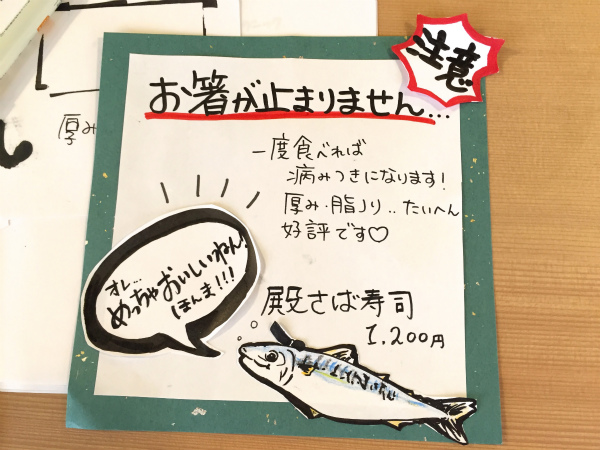 注意
お箸が止まりません…
一度食べれば
病みつきになります!
厚み・脂ノリ‥たいへん
好評です♡
オレ…
めっちゃおいしいねん!
ほんま!!!
殿さば寿司
1,200円
厚み